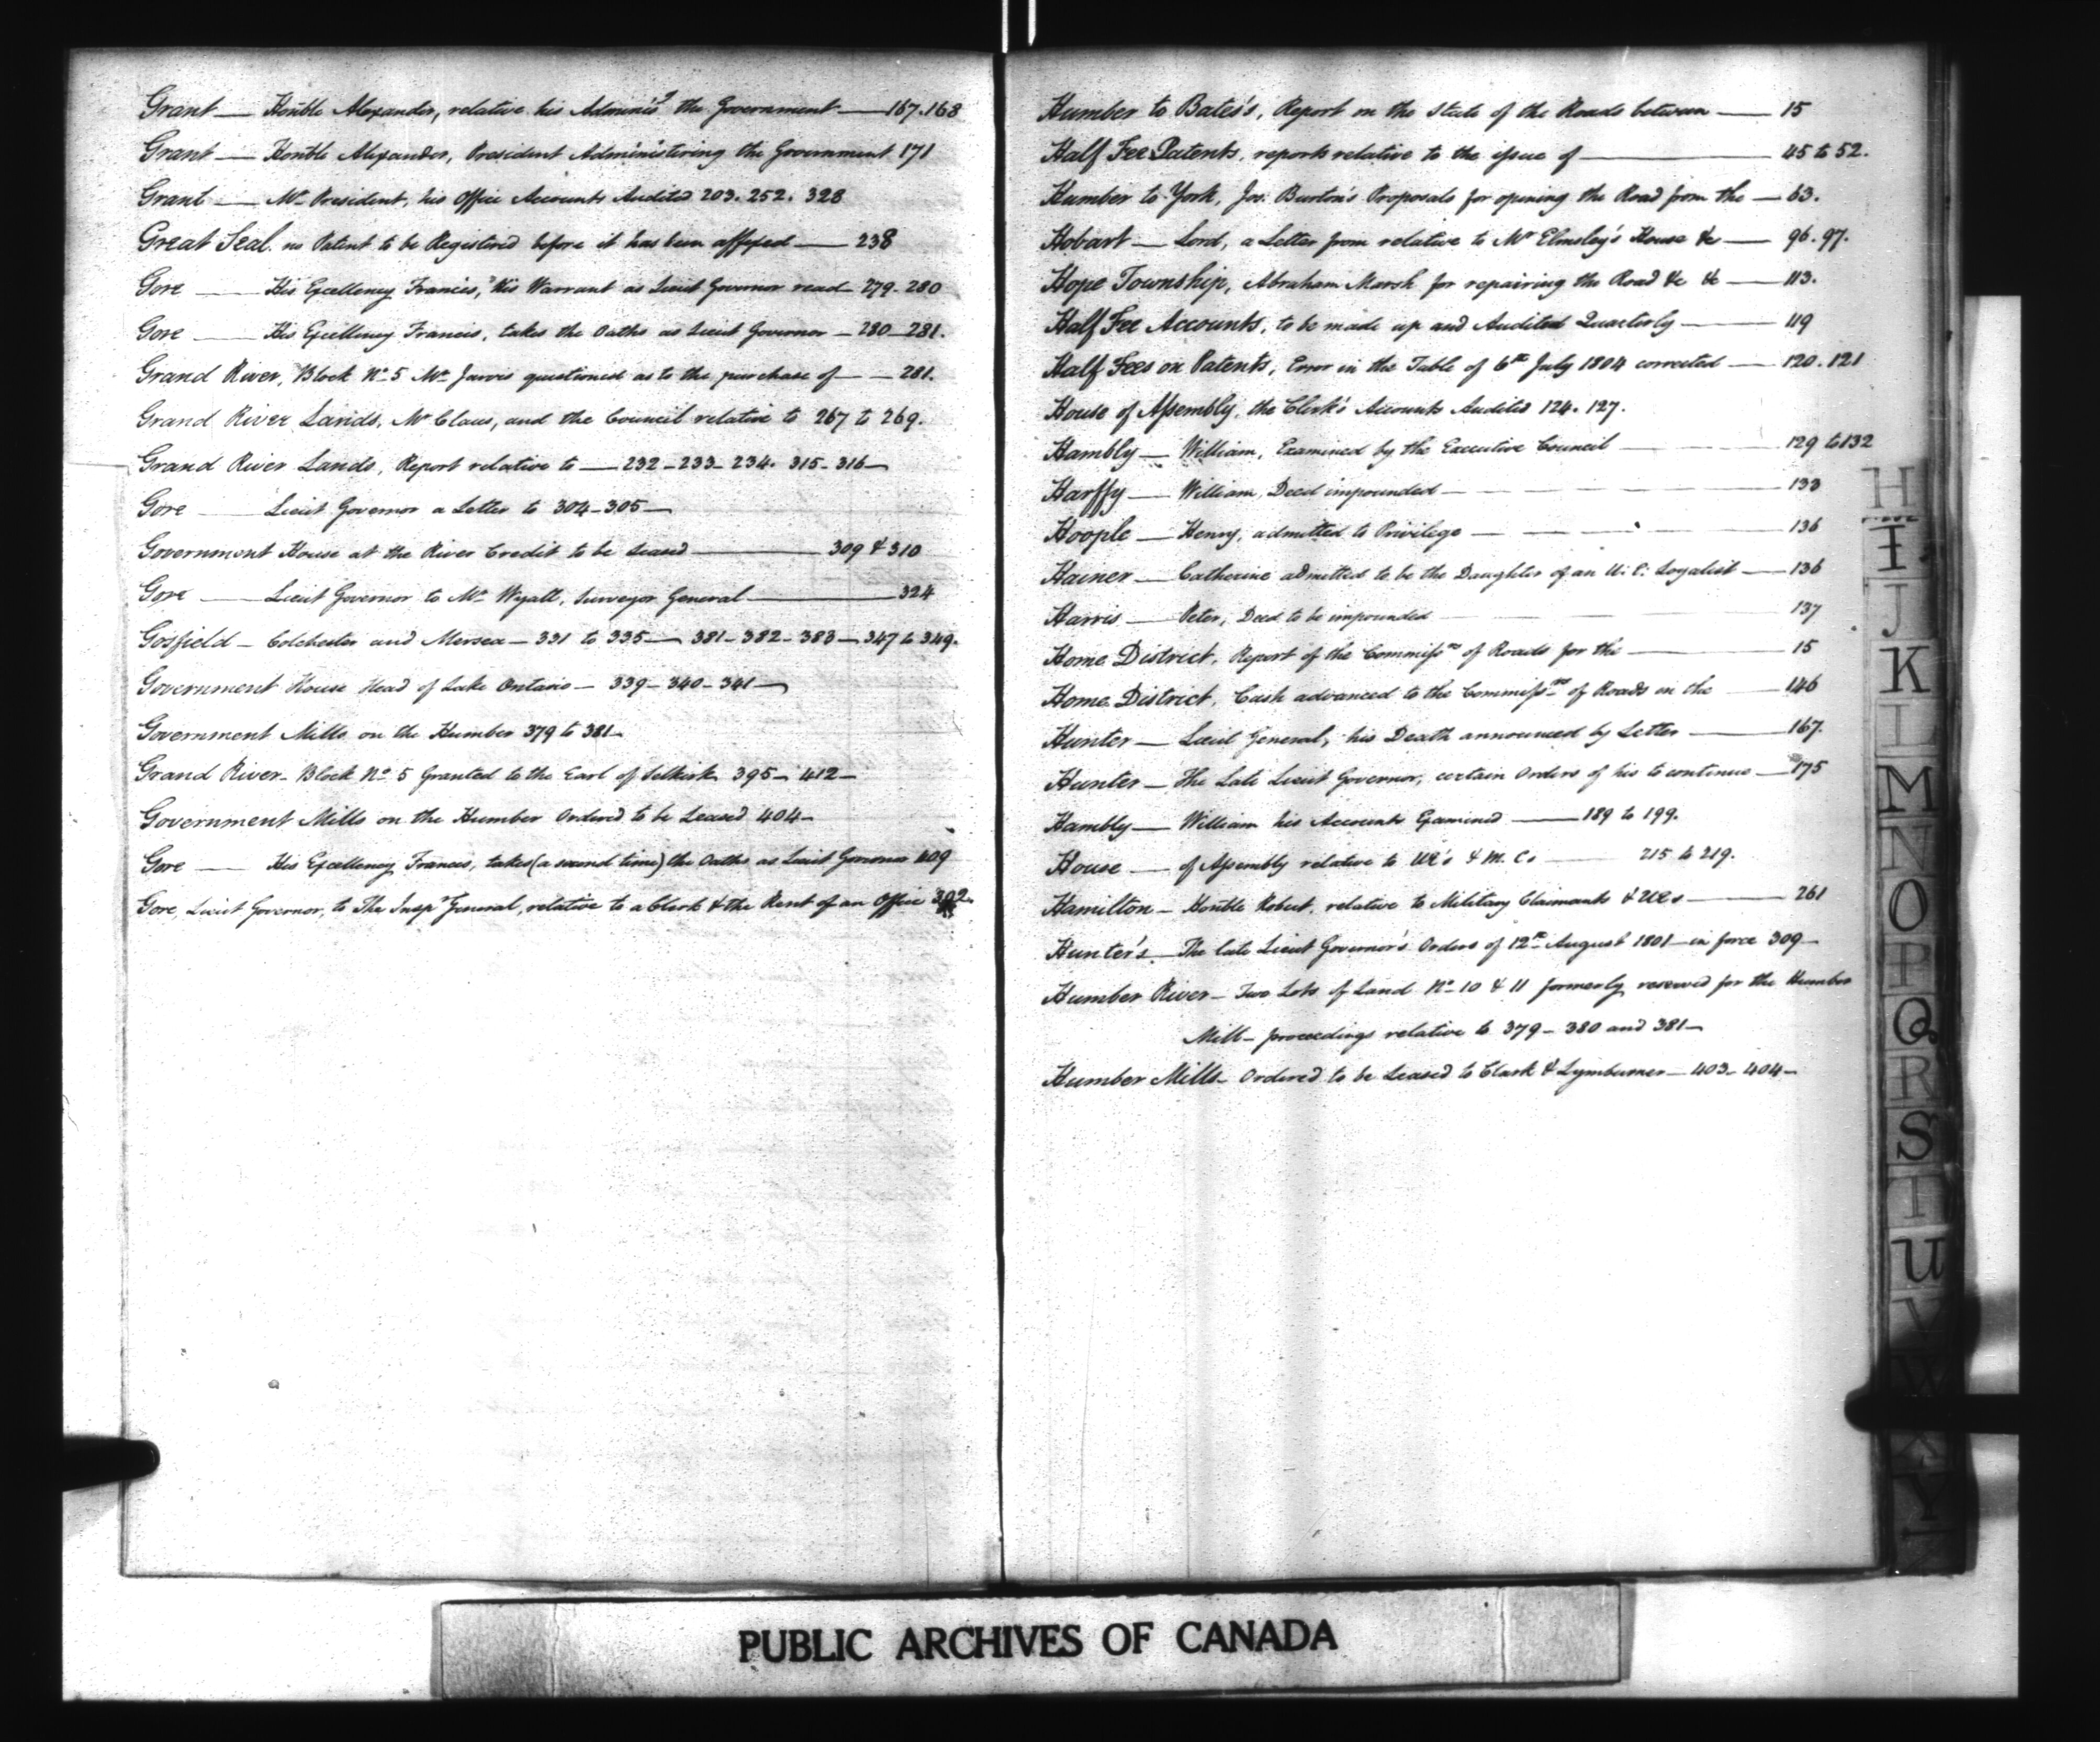 Grant — Honble Alexander, relative his Adminis^g the Government — 167.168
Grant — Honble Alexander, President Administering the Government 171
Grant — Mr President, his Office Accounts Audited 203. 252. 328
Great Seal. no Patent to be Registered before it has been affixed — 238
Gore — His Excellency Francis, his Warrant as Lieut Governor read 279-280
Gore — His Excellency Francis, takes the Oaths as Lieut Governor — 280-281.
Grand River, Block No 5 Mr Jarvis questioned as to the purchase of — 281.
Grand River Lands, Mr Claus, and the Council relative to 267 to 269.
Grand River Lands, Report relative to — 232-233-234. 315-316—
Gore — Lieut Governor a Letter to 304-305—
Government House at the River Credit to be Leased — 309 & 310
Gore — Lieut Governor to Mr Wyatt, Surveyor General — 324
Gosfield — Colchester and Mersea — 331 to 335 — 381-382-383 — 347 to 349.
Government House Head of Lake Ontario — 339-340-341—
Government Mills on the Humber 379 to 381—
Grand River — Block No 5 Granted to the Earl of Selkirk 395— 412—
Government Mills on the Humber Ordered to be Leased 404—
Gore — His Excellency Frances, takes (a second time) the Oaths as Lieut Governor 409
Gore, Lieut Governor, to The Insp^r General, relative to a Clerk & the Rent of an Office 302
Humber to Bates's, Report on the State of the Roads between — 15
Half Fee Patents, reports relative to the issue of — 45 to 52.
Humber to York, Jos. Burton's Proposals for opening the Road from the — 63.
Hobart — Lord, a Letter from relative to Mr Elmsley's House &c — 96.97.
Hope Township, Abraham Marsh for repairing the Road &c &c — 113.
Half Fee Accounts, to be made up and Audited Quarterly — 119
Half Fees on Patents, Error in the Table of 6th July 1804 corrected — 120.121
House of Assembly, the Clerk's Accounts Audited 124. 127.
Hambly — William, Examined by the Executive Council — 129 to 132
Harffy — William, Deed impounded — 133
Hoople — Henry, admitted to Privilege — 136
Hainer — Catherine admitted to be the Daughter of an U. E. Loyalist — 136
Harris — Peter, Deed to be impounded — 137
Home District, Report of the Commiss^rs of Roads for the — 15
Home District, Cash advanced to the Commiss^rs of Roads in the — 146
Hunter — Lieut General, his Death announced by Letter — 167.
Hunter — The Late Lieut Governor, certain Orders of his to continue — 175
Hambly — William his Accounts Examined — 189 to 199.
House — of Assembly relative to UE's & M. Cs — 215 to 219.
Hamilton — Honble Robert, relative to Military Claimants & UEs — 261
Hunter's — The late Lieut Governor's Orders of 12th August 1801 — in force 309—
Humber River — Two Lots of Land No 10 & 11 formerly reserved for the Humber
Mill — proceedings relative to 379 - 380 and 381—
Humber Mills — Ordered to be Leased to Clark & Lymburner — 403-404—
H
I
J
K
L
M
N
O
P
Q
R
S
T
U
V
W
X
Y
PUBLIC ARCHIVES OF CANADA